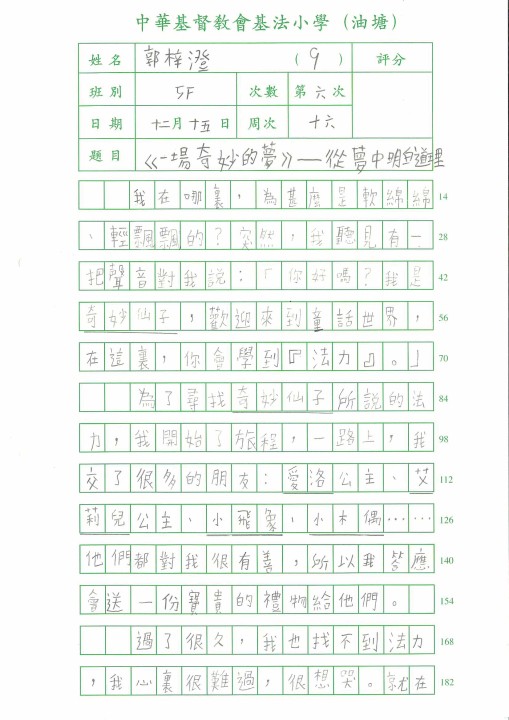 中華基督教會基法小學（油塘）
姓名 郭梓澄 （9） 評分
班別 5F 次數 第六次
日期 十二月十五日 周次 十六
題目 《一場奇妙的夢》——從夢中明白道理
我在哪裏，為甚麼是軟綿綿 14
、輕飄飄的？突然，我聽見有一 28
把聲音對我說：「你好嗎？我是 42
奇妙仙子，歡迎來到童話世界， 56
在這裏，你會學到『法力』。」 70
為了尋找奇妙仙子所說的法 84
力，我開始了旅程，一路上，我 98
交了很多的朋友：愛洛公主、艾 112
莉兒公主、小飛象、小木偶…… 126
他們都對我很有善，所以我答應 140
會送一份寶貴的禮物給他們。 154
過了很久，我也找不到法力 168
，我心裏很難過，很想哭。就在 182